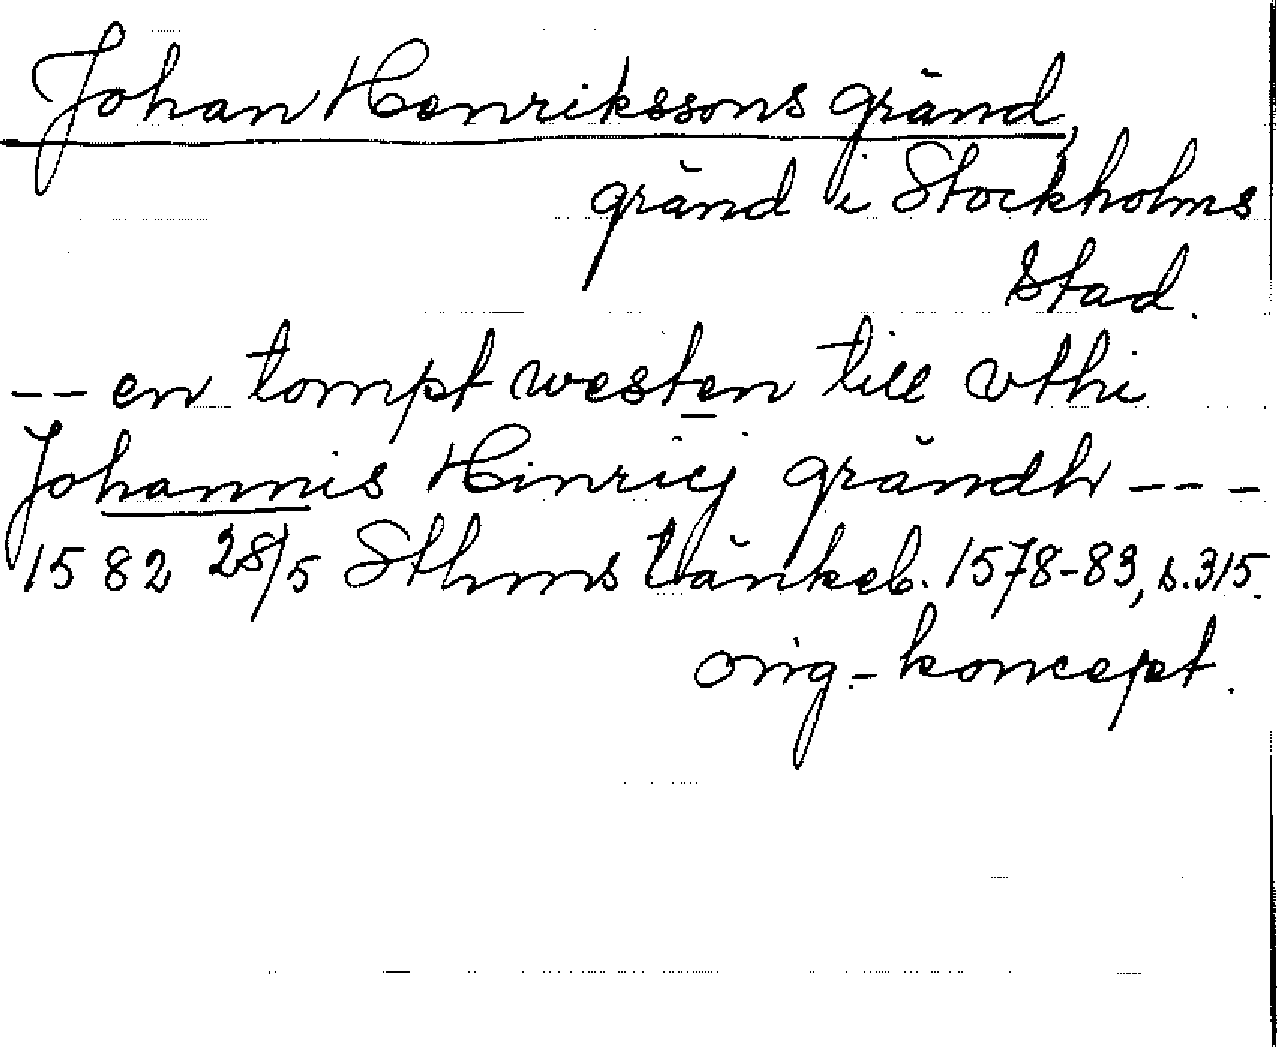 Johan Henrikssons gränd,
gränd i Stockholms
stad.
-- en tompt westen till vthi
Johannis Hinricj grändh ---
1582 28/5 Sthms tänkeb. 1578-83, s. 315.
orig.-koncept.